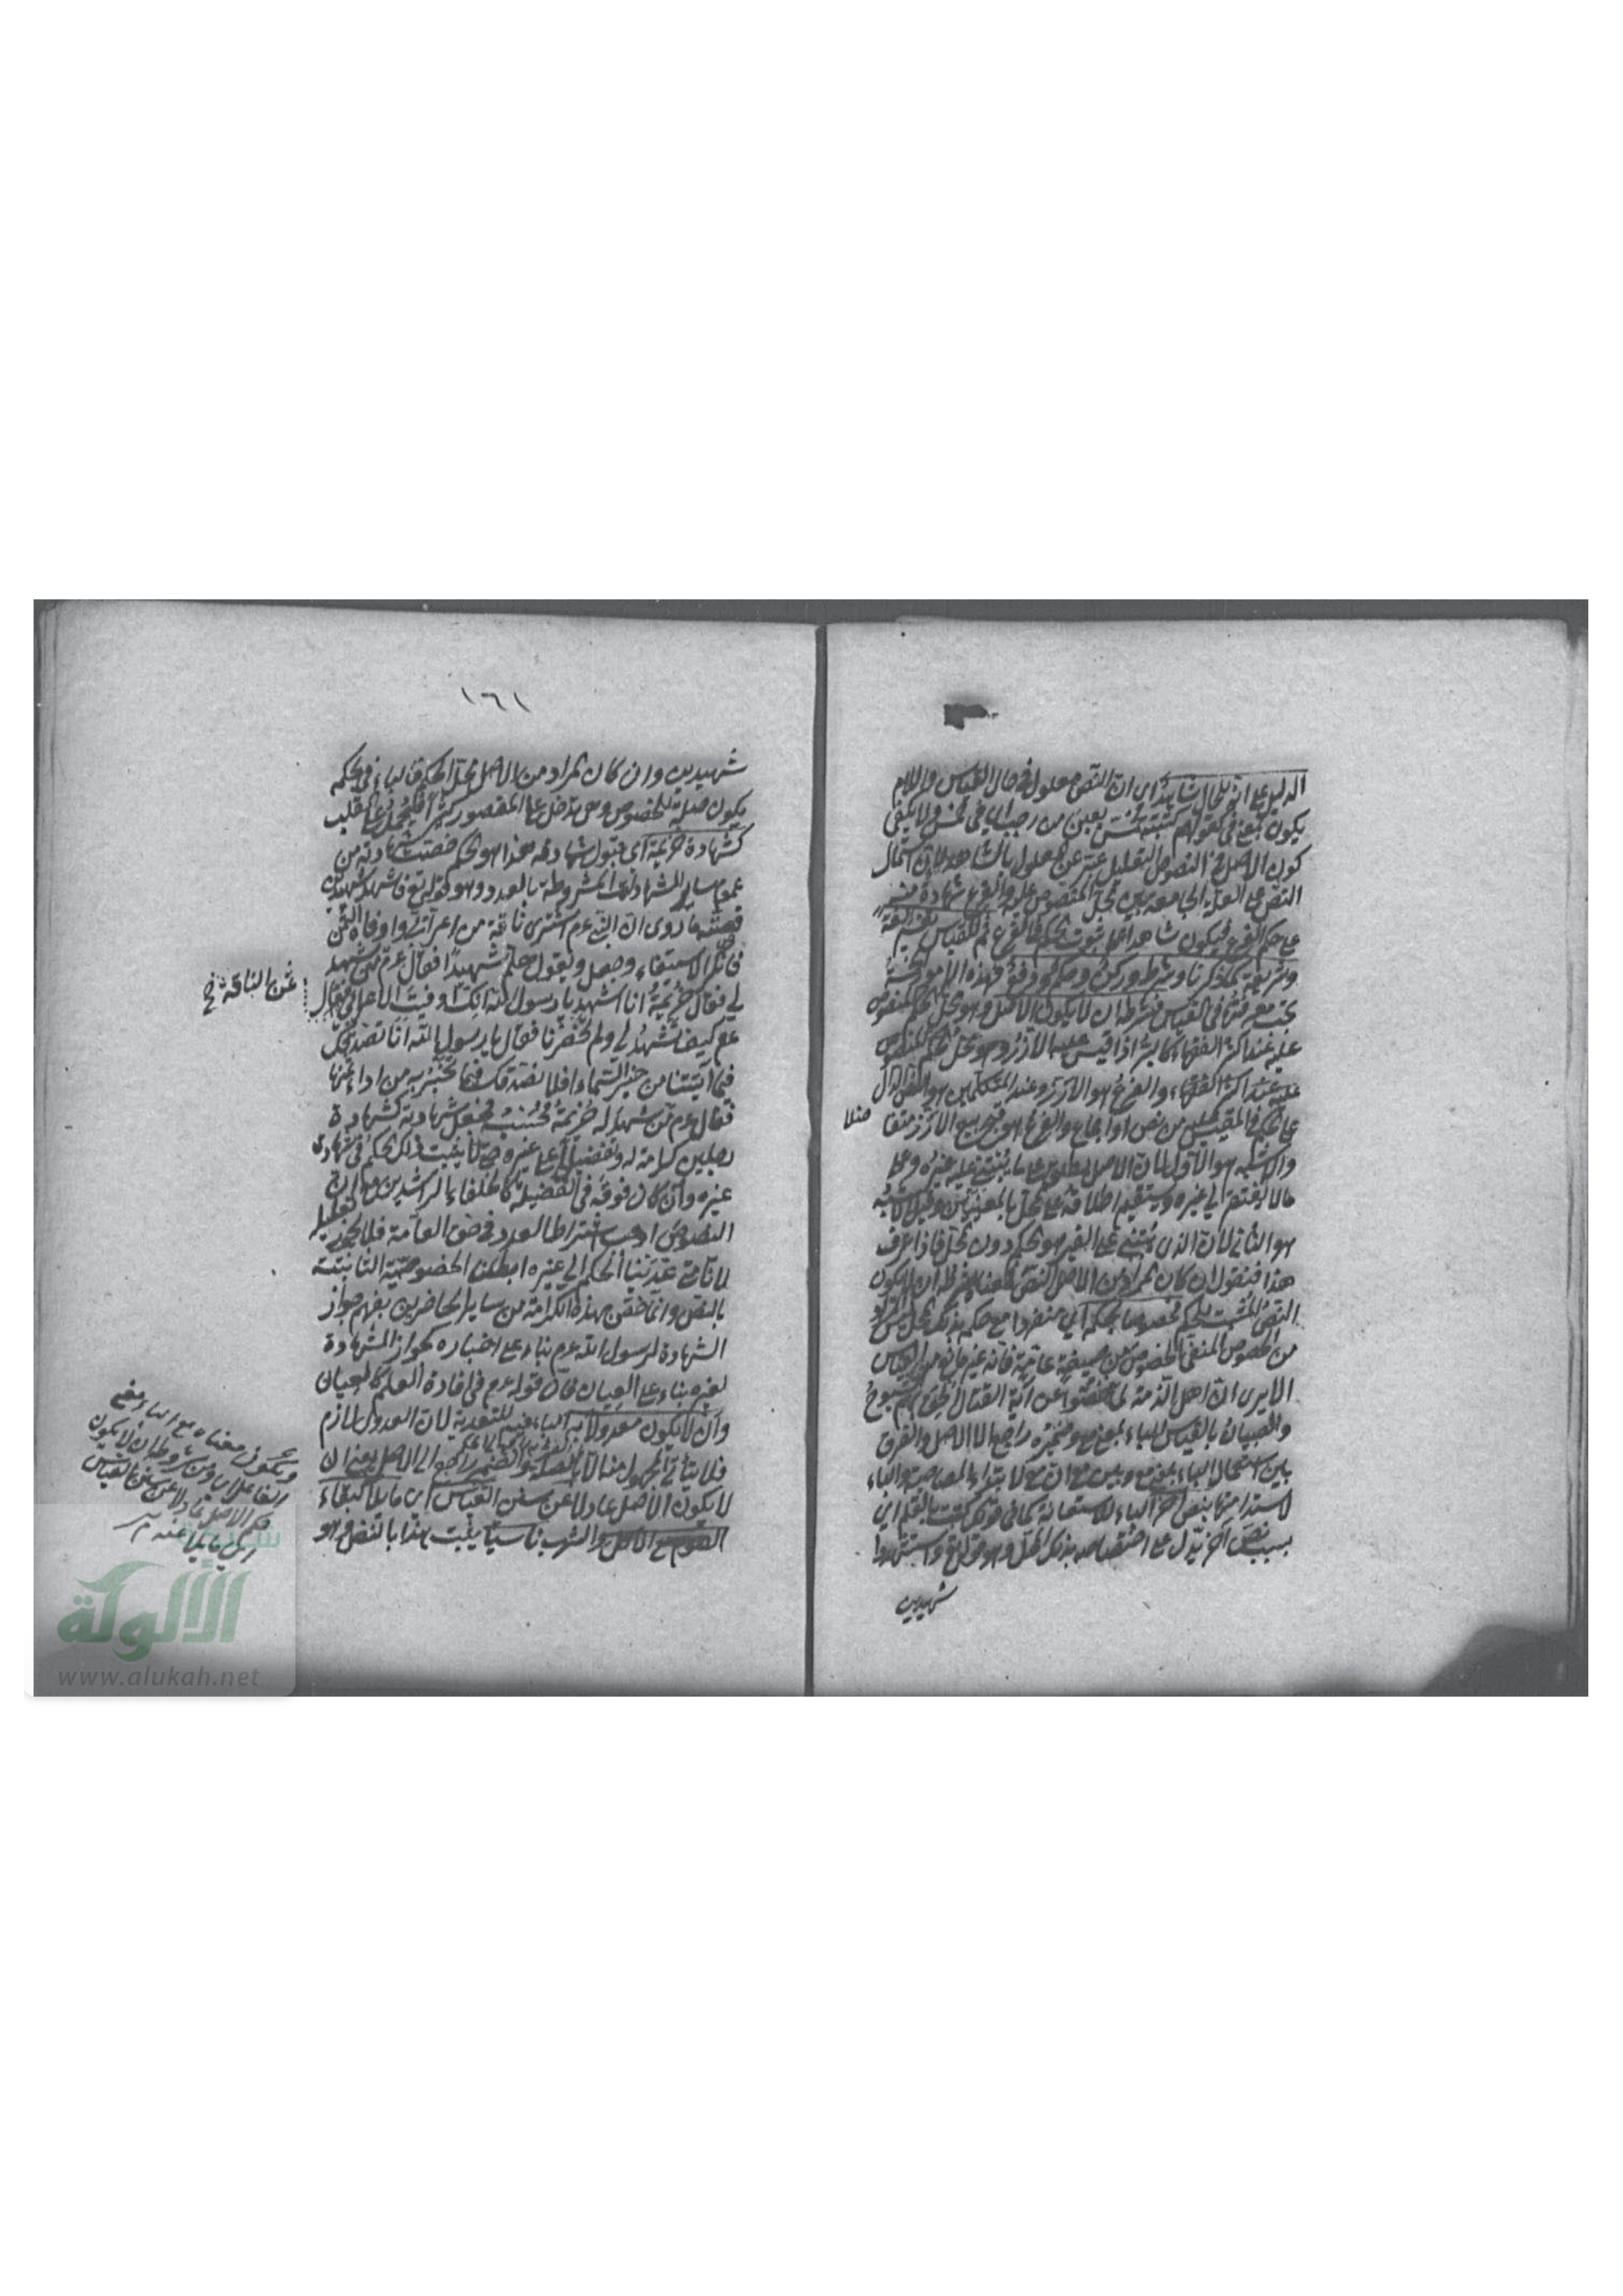 الدليل على انه للحال شاهد اي ان النص معلول في حال القياس واللام
يكون بمعنى في كقولهم كتبته لخمس بقين من رجب اي في خمس ولا يكفي
كون الاصل في النصوص التعليل عبر عن المعلول بالشاهد لان اشتمال
النص على العلة الجامعة بين محل المنصوص عليه والفرع شهادة منه
على حكم الفرع فيكون شاهدا على ثبوت الحكم في الفرع ثم للقياس تفسير لغة
وشريعة كما ذكرنا وشرط وركن وحكم ودفع فهذه الامور الخمسة
يجب معرفتها في القياس فشرطه ان لا يكون الاصل وهو محل الحكم المنصوص
عليه عند اكثر الفقهاء كالبر اذا قيس عليه الارز وهو محل الحكم المنصوص
عليه عند اكثر الفقهاء والفرع هو الارز وعند المتكلمين هو النص الدال
على الحكم في المقيس عليه من نص او اجماع والفرع هو حكم بيع الارز متفا
ضلا
والاشبه هو الاول لان الاصل يطلق على ما يبتنى عليه غيره وعلى
ما لا يفتقر الى غيره ويستقيم اطلاقه على المحل بالمعنيين وقيل الاشبه
هو الثاني لان الذي يبتنى على الغير هو الحكم دون المحل فاذا عرف
هذا فنقول ان كان المراد من الاصل النص فمعناه شرطه ان لا يكون
النص المثبت للحكم مخصوصا بحكمه اي منفردا مع حكمه بذلك المحل ليس المراد
من الخصوص المنفي الخصوص من صيغة عامة فانه غير مانع من القياس
الا يرى ان اهل الذمة لما خصوا عن آية القتال لحق بهم الشيوخ
والصبيان بالقياس للباء بمعنى مع وضميره راجعا الى الاصل والفرق
بين استعمال الباء بمعنى مع وبين مع ان مع لابتداء المصاحبة والباء
لاستدامتها بنص آخر الباء للاستعانة كما في قولك كتبت بالقلم اي
بسبب نص آخر يدل على اختصاصه بذلك المحل وهو قوله تع واستشهدوا
شهيدين
١٦١
شهيدين وان كان المراد من الاصل محل الحكم فالباء في بحكمه
يكون صلة للخصوص وهي تدخل على المقصور كثيرا فيحمل على القلب
كشهادة خزيمة اي قبول شهادته هذا هو الحكم خصت شهادته من
عموم ساير الشهادات المشروطة بالعدد وهو قوله تع فاستشهدوا شهيدين
قصته ما روى ان النبي عم اشترى ناقة من اعرابي واوفاه الثمن
فانكر الاستيفاء وجعل يقول هلم شهيدا فقال عم من يشهد
لي فقال خزيمة انا اشهد يا رسول الله انك اوفيت الاعرابي فقال
ثمن الناقة خ
عم كيف تشهد لي ولم تحضرنا فقال يا رسول الله انا نصدقك
فيما آتيتنا من خبر السماء افلا نصدقك فيما تخبر به من اداء ثمنها
فقال عم من شهد له خزيمة فحسبه فجعل شهادته كشهادة
رجلين كرامة له وتفضيلا على غيره حتى لا يثبت ذلك الحكم في شهادة
غيره وان كان فوقه في الفضيلة كالخلفاء الراشدين مع ان
النصوص اوجبت اشتراط العدد في حق العامة فلا يجوز تعليله
لانا متى عدينا الحكم الى غيره ابطلنا الخصوصية الثابتة
بالنص وانما خص بهذه الكرامة من ساير الحاضرين بفهم جواز
الشهادة لرسول الله عم بناء على اخباره كجواز الشهادة
لغيره بناء على العيان فان قوله عم في افادة العلم كالعيان
وان لا يكون معدولا به الباء فيه للتعدية لان العدول لازم
فلا يتأتى المجهول منه الا بالصلة والضمير راجع الى الاصل يعني ان
لا يكون الاصل عادلا عن سنن القياس اي مايلا كبقاء
الصوم مع الاكل والشرب ناسيا يثبت بهذا بالنص وهو
ويكون معناه مع الباء معنى
الفاعل اي ومن شروطه ان لا يكون
حكم الاصل عادلا عن سنن القياس
اي مايلا عنه
شبكة
الألوكة
www.alukah.net